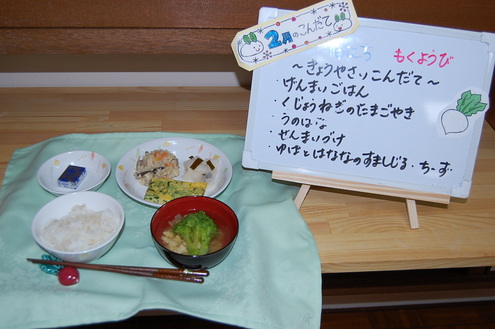 2月のこんだて
もくようび
～きょうやさいこんだて～
・げんまいごはん
・くじょうねぎのたまごやき
・うのはな
・せんまいづけ
・ゆばとはなふのすましじる・ちーず